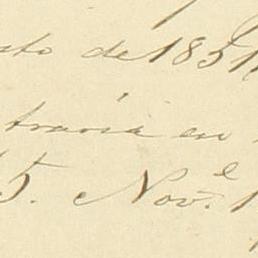 sto de 1851
travia en
5. e Nov.e 1